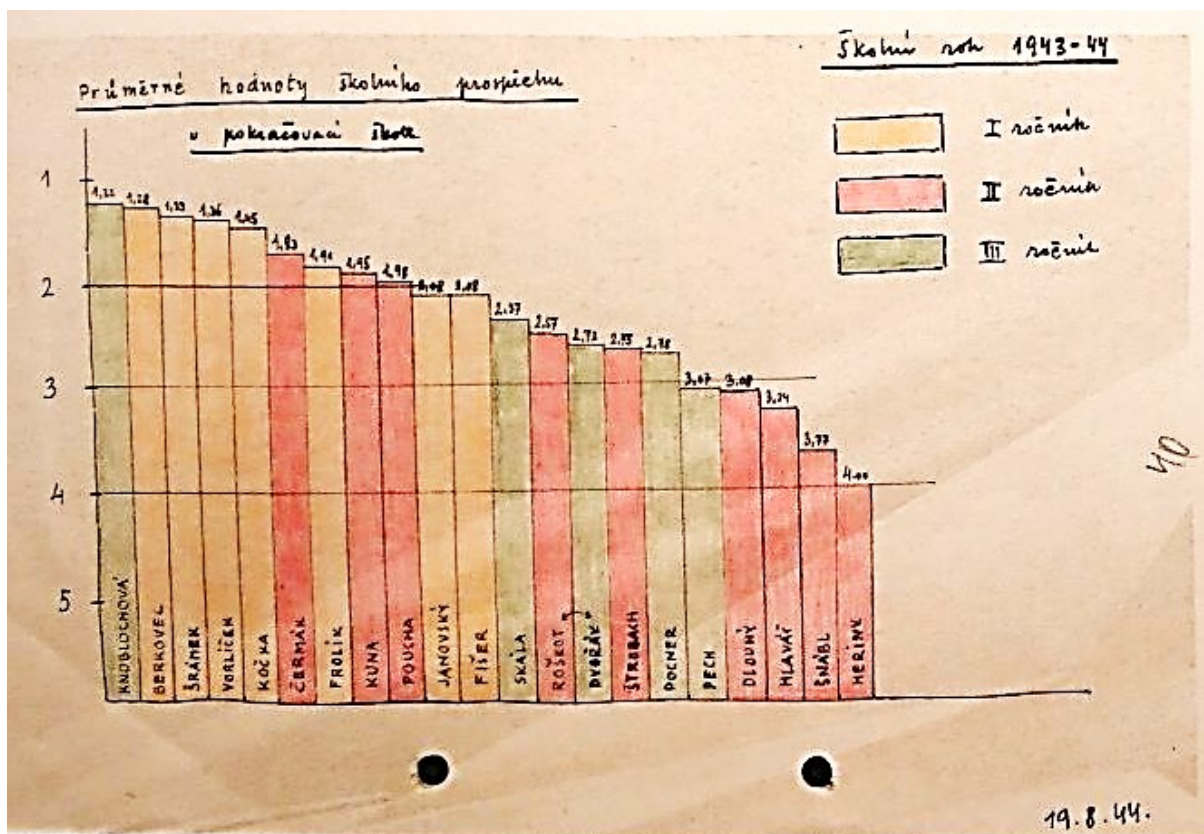 Školní rok 1943-44
Průměrné hodnoty školního prospěchu
v pokračovací škole
I ročník
II ročník
III ročník
1
2
3
4
5
1,22
1,28
1,33
1,36
1,45
1,83
1,91
1,95
1,98
2,08
2,08
2,37
2,57
2,72
2,75
2,78
3,07
3,08
3,24
3,77
4.00
KNOBLOCHOVÁ
BERKOVEC
ŠRÁMEK
VORLÍČEK
KOČKA
ČERMÁK
FROLÍK
KUNA
POUCHA
JANOVSKÝ
FIŠER
SKÁLA
ROŠKOT
DVOŘÁK
ŠTROBACH
POCNER
PECH
DLOUHÝ
HLAVÁČ
ŠNÁBL
HERINK
40
19.8.44.